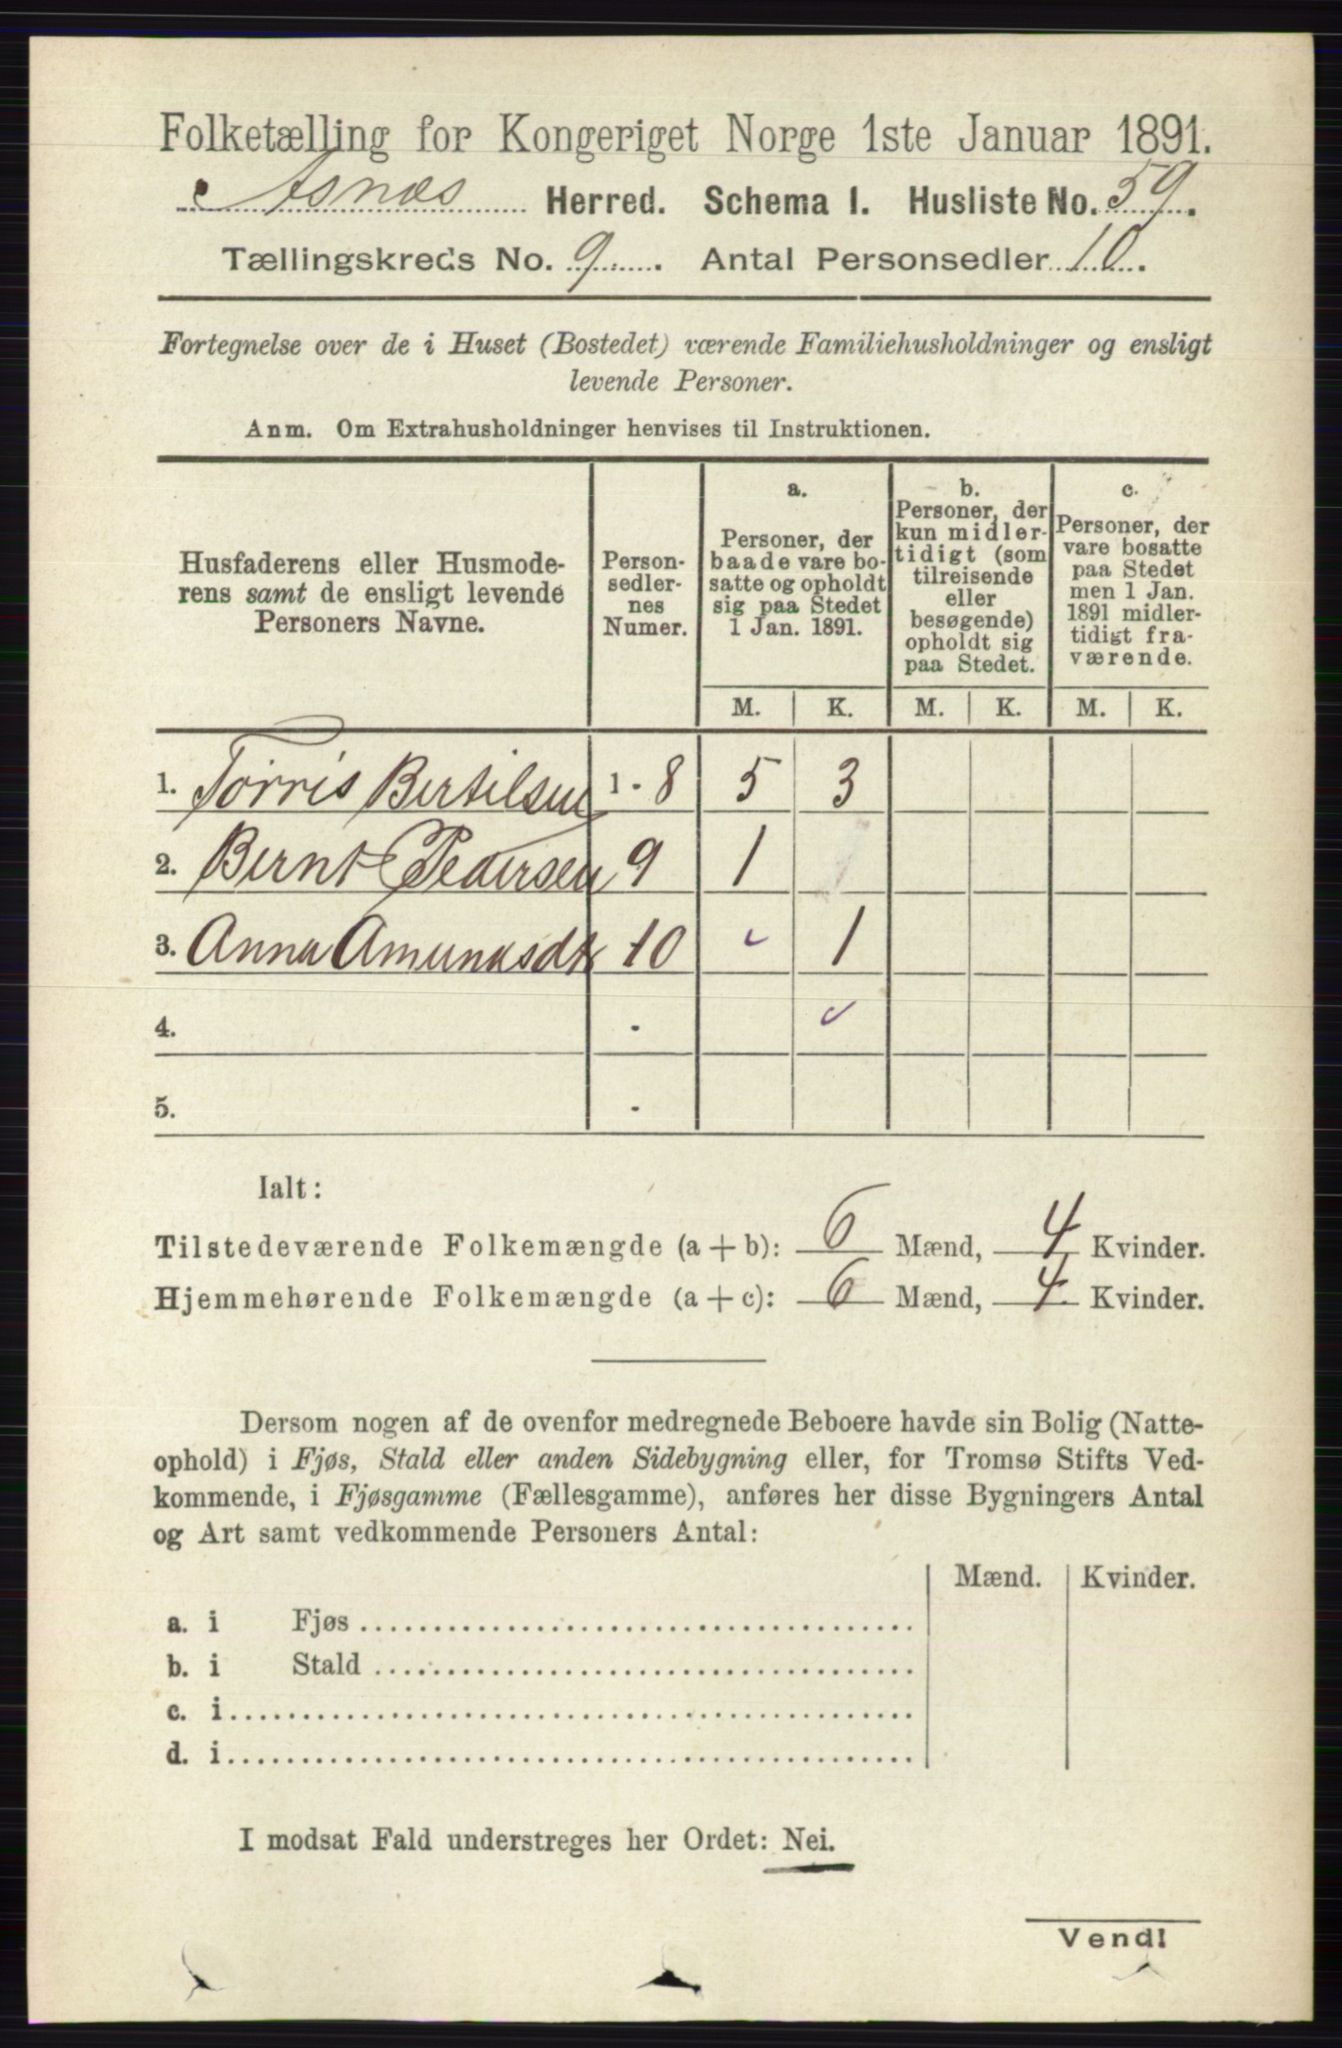 Folketælling for Kongeriget Norge 1ste Januar 1891.
Asnæs Herred. Schema I. Husliste No. 59.
Tællingskreds No. 9. Antal Personsedler 10.
Fortegnelse over de i Huset (Bostedet) værende Familiehusholdninger og ensligt
levende Personer.
Anm. Om Extrahusholdninger henvises til Instruktionen.
Husfaderens eller Husmode-
rens samt de ensligt levende
Personers Navne.
Person-
sedler-
nes
Numer.
a.
Personer, der
baade vare bo-
satte og opholdt
sig paa Stedet
1 Jan. 1891.
b.
Personer, der
kun midler-
tidigt (som
tilreisende
eller
besøgende)
opholdt sig
paa Stedet.
c.
Personer, der
vare bosatte
paa Stedet
men 1 Jan.
1891 midler-
tidigt fra-
værende.
M. K. M. K. M. K.
1. Törris Bertilsen 1 - 8 5 3
2. Bernt Pedersen 9 1
3. Anna Amundsdt 10 1
4.
5.
Ialt:
Tilstedeværende Folkemængde (a + b): 6 Mænd, 4 Kvinder.
Hjemmehørende Folkemængde (a + c): 6 Mænd, 4 Kvinder.
Dersom nogen af de ovenfor medregnede Beboere havde sin Bolig (Natte-
ophold) i Fjøs, Stald eller anden Sidebygning eller, for Tromsø Stifts Ved-
kommende, i Fjøsgamme (Fællesgamme), anføres her disse Bygningers Antal
og Art samt vedkommende Personers Antal:
Mænd. Kvinder.
a. i Fjøs
b. i Stald
c. i
d. i
I modsat Fald understreges her Ordet: Nei.
Vend!